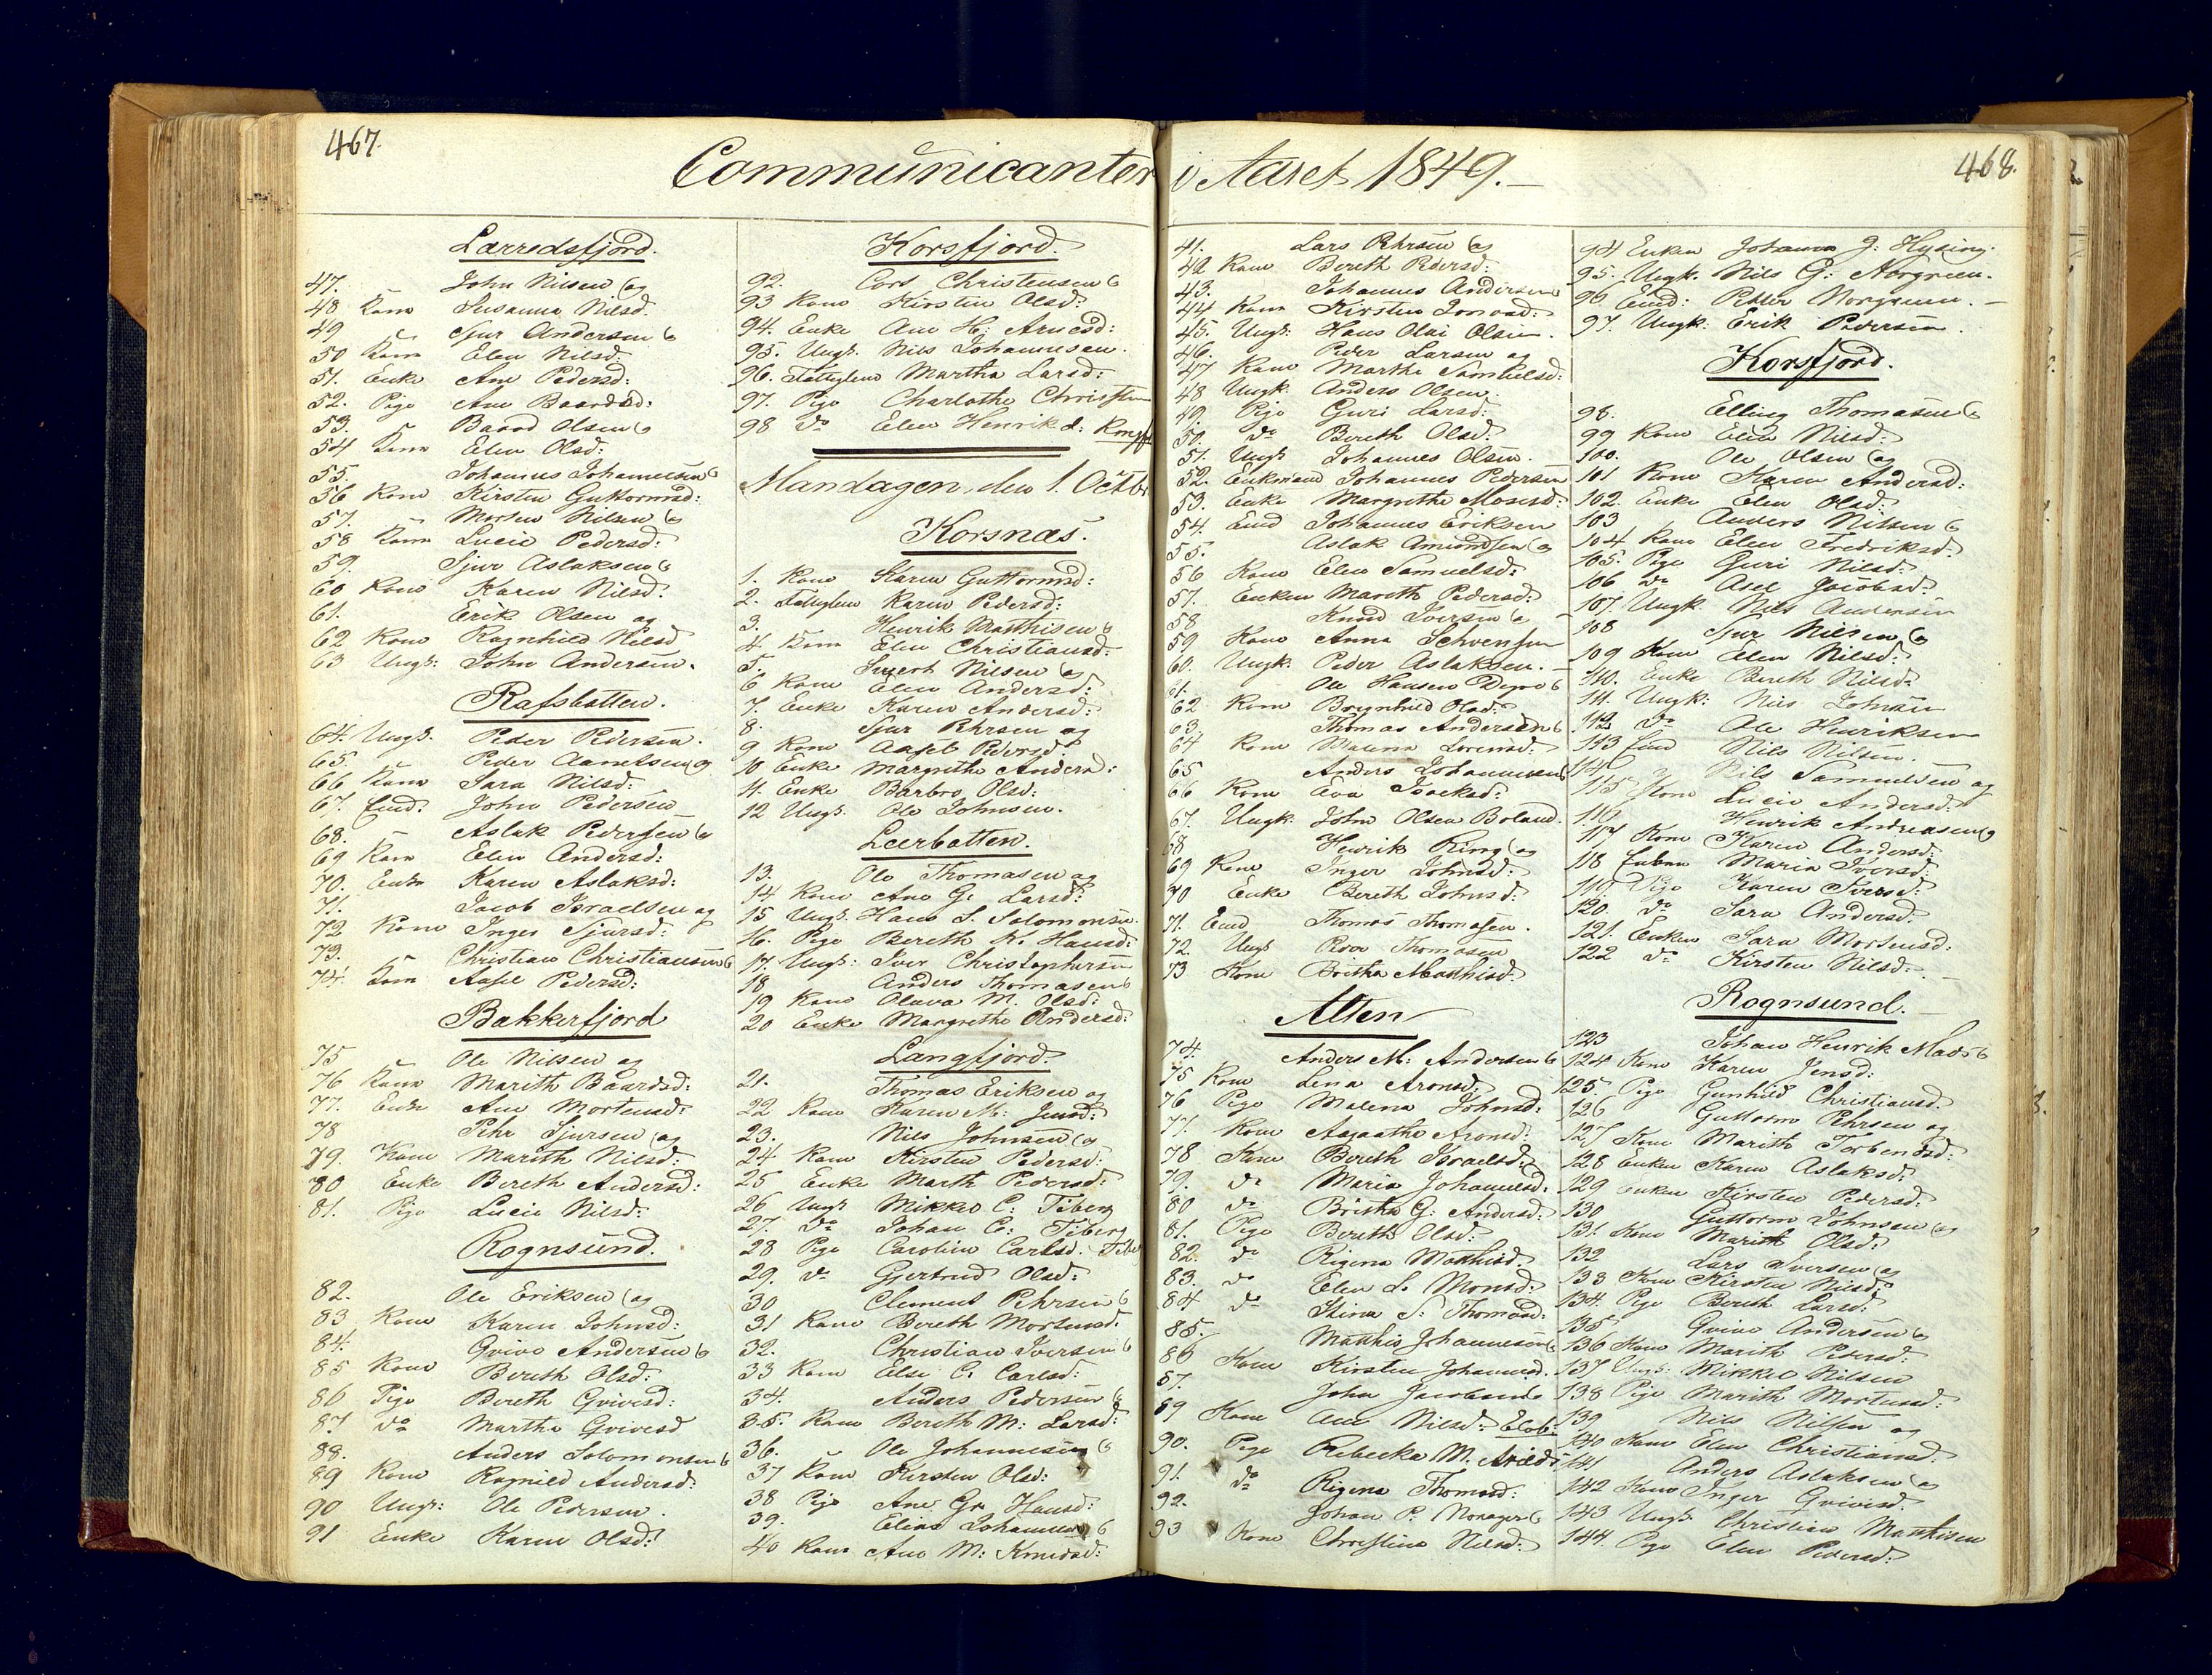 467.
Communicanter i Aaret 1849.
468.
Larredsfjord.
47. John Nilsen og
48 Kone Susanna Nilsd:
49 Sjur Andersen og
50 Kone Elen Nilsd:
51. Enke Ane Pedersd:
52. Pige Ane Baardsd:
53. Baard Olsen og
54 Kone Elen Olsd:
55. Johannes Johannesen og
56 Kone Kirsten Guttormsd:
57. Morten Nilsen og
58 Kone Lucie Pedersd:
59. Sjur Aslaksen og
60 Kone Karen Nilsd:
61. Erik Olsen og
62 Kone Ragnhild Nilsd
63 Ungk: John Andersen.
Rafsbotten.
64. Ungk. Peder Pedersen.
65. Peder Aametsen og
66 Kone Sara Nilsd:
67. Eind. John Pedersen
68. Aslak Pedersen og
69 Kone Elen Andersd:
70. Enke Karen Aslaksd:
71. Jacob Israelsen og
72. Kone Inger Sjursd:
73. Christian Christiansen og
74. Kone Aasel Pedersd:
Bakkerfjord
75 Ole Nilsen og
76 Kone Marith Baardsd:
77. Enke Ane Mortensd:
78 Pehr Sjursen og
79. Kone Marith Nilsd:
80 Enke Bereth Andersd:
81. Pige Lucie Nilsd:
Rognsund.
82. Ole Eriksen og
83 Kone Karen Johnsd:
84. Gvivo Andersen og
85 Kone Bereth Olsd:
86 Pige Bereth Gvivesd:
87. do Martha Gvivesd
88. Anders Solomonsen og
89 Kone Ragnild Andersd:
90 Ungk: Ole Pedersen.
91 Enke Karen Olsd:
Korsfjord.
92. Cort Christensen og
93 Kone Kirsten Olsd:
94. Enke Ane H: Arnesd:
95. Ungk. Nils Johannesen.
96. Fattiglem Martha Larsd:
97. Pige Charlothe Christen
98 do Elen Henrik d:
Mandagen den 1. Octbr
Korsnæs.
1. Kone Karen Guttormsd:
2. Fattiglem Karen Pedersd:
3. Henrik Matthisen og
4 Kone Elen Christiansd:
5. Sivert Nilsen og
6 Kone Elen Andersd:
7. Enke Karen Andersd:
8. Sjur Pehrsen og
9 Kone Aasel Pedersd
10 Enke Margrethe Andersd:
11. Enke Barbro Olsd:
12 Ungk. Ole Johnsen.
Leerbotten.
13. Ole Thomasen og
14 Kone Ane G. Larsd:
15 Ungk. Hans S. Solomonsen.
16. Pige Bereth K. Hansd:
17. Ungk: Iver Christophersen
18 Anders Thomasen og
19 Kone Olava M. Olsd:
20 Enke Margrethe Andersd:
Langfjord.
21. Thomas Eriksen og
22 Kone Karen M: Jensd:
23. Nils Johnsen og
24 Kone Kirsten Pedersd:
25 Enke Marth Pedersd:
26 Ungk Mikkel C: Fiberg
27. do Johan C: Fiberg
28 Pige Caroline Carlsd: Fiberg
29. do Gjertrud Olsd:
30 Clement Pehrsen og
31 Kone Bereth Mortensd.
32. Christian Iversen og
33 Kone Else C. Carlsd:
34. Anders Pedersen og
35. Kone Bereth M: Larsd:
36. Ole Johannesen og
37 Kone Kirsten Olsd:
38 Pige Ane Gr. Hansd:
39. Elias Johannesen og
40 Kone Ane M: Knudsd:
41. Lars Pehrsen og
42 Kone Bereth Pedersd:
43. Johannes Andersen
44 Kone Kirsten Jonasd:
45. Ungk: Hans Olai Olsen.
46. Peder Larsen og
47 Kone Marthe Samuelsd:
48 Ungk. Anders Olsen.
49. Pige Guri Larsd:
50. do Bereth Olsd:
51. Ungk Johannes Olsen.
52. Enkemand Johannes Pedersen
53. Enke Margrethe Mosesd:
54. Eind Johannes Eriksen
55. Aslak Amundsen og
56 Kone Elen Samuelsd:
57. Enken Mareth Pedersd:
58 Knud Iversen og
59 Kone Anna Schvensen
60. Ungk. Peder Aslaksen.
61. Ole Hansen og
62 Kone Brynhild Olsd:
63 Thomas Andersen og
64 Kone Malena Lorensd:
65 Anders Johannesen
66 Kone Eva Isacksd:
67. Ungk. John Olsen Boland.
68 Henrik Ring og
69 Kone Inger Johnsd:
70 Enke Bereth Johnsd:
71. Eind Thomas Thomasen.
72. Ungk Peder Thomasen
73 Kone Britha Matthisd:
Alten
74. Anders M: Andersen og
75 Kone Lena Aronsd:
76 Pige Malena Johnsd:
77. Kone Aagaathe Aronsd:
78 Kone Bereth Israelsd:
79. do Maria Johannesd:
80 do Britha G: Andersd:
81. Pige Bereth Olsd:
82. do Rigena Matthisd:
83. do Elen L. Monsd:
84 do Stina S: Thomasd:
85. Matthis Johannesen og
86 Kone Kirsten Johannesd.
87. John Jacobsen
89 Kone Ane Nilsd:
90. Pige Rebecka M. Arildsd
91. do Rigena Thomasd:
92. Johan P.
93 Kone Christine Nilsd:
94 Enken Johanna J: Hysing.
95. Ungk. Nils G: Norgreen.
96. Eind: Peder Norgreen.
97. Ungk: Erik Pedersen.
Korsfjord.
98. Elling Thomasen og
99 Kone Elen Nilsd:
100. Ole Olsen og
101 Kone Karen Andersd:
102. Enke Elen Olsd:
103 Anders Nilsen og
104 Kone Elen Fredriksd:
105. Pige Guri Nilsd:
106 do Asel Jacobsd:
107. Ungk. Nils Andersen
108 Sjur Nilsen og
109 Kone Elen Nilsd:
110. Enke Bereth Nilsd:
111. Ungk: Nils Johnsen
112 do Ole Henriksen
113 Eind Nils Nilsen.
114 Nils Samuelsen og
115 Kone Lucie Andersd:
116 Henrik Andreasen og
117 Kone Karen Andersd:
118 Enken Maria Iversd:
119 Pige Karen Iversd:
120. do Sara Andersd:
121. Enken Sara Mortensd:
122 do Kirsten Nilsd:
Rognsund.
123 Johan Henrik Mads
124 Kone Karen Jensd:
125. Pige Gunhild Christiansd.
126 Guttorm Pehrsen og
127 Kone Marith Torbensd:
128 Enken Karen Aslaksd:
129 Enken Kirsten Pedersd:
130 Guttorm Johnsen og
131. Kone Marith Olsd:
132 Lars Iversen og
133 Kone Kirsten Nilsd:
134. Pige Bereth Larsd:
135 Gvivo Andersen og
136 Kone Marith Pedersd:
137 Ungk: Mikkel Nilsen
138 Pige Marith Mortensd:
139 Nils Nilsen og
140 Kone Elen Christiansd:
141 Anders Aslaksen og
142 Kone Inger Gvivesd:
143 Ungk Christian Matthisen
144. Pige Elen Pedersd: